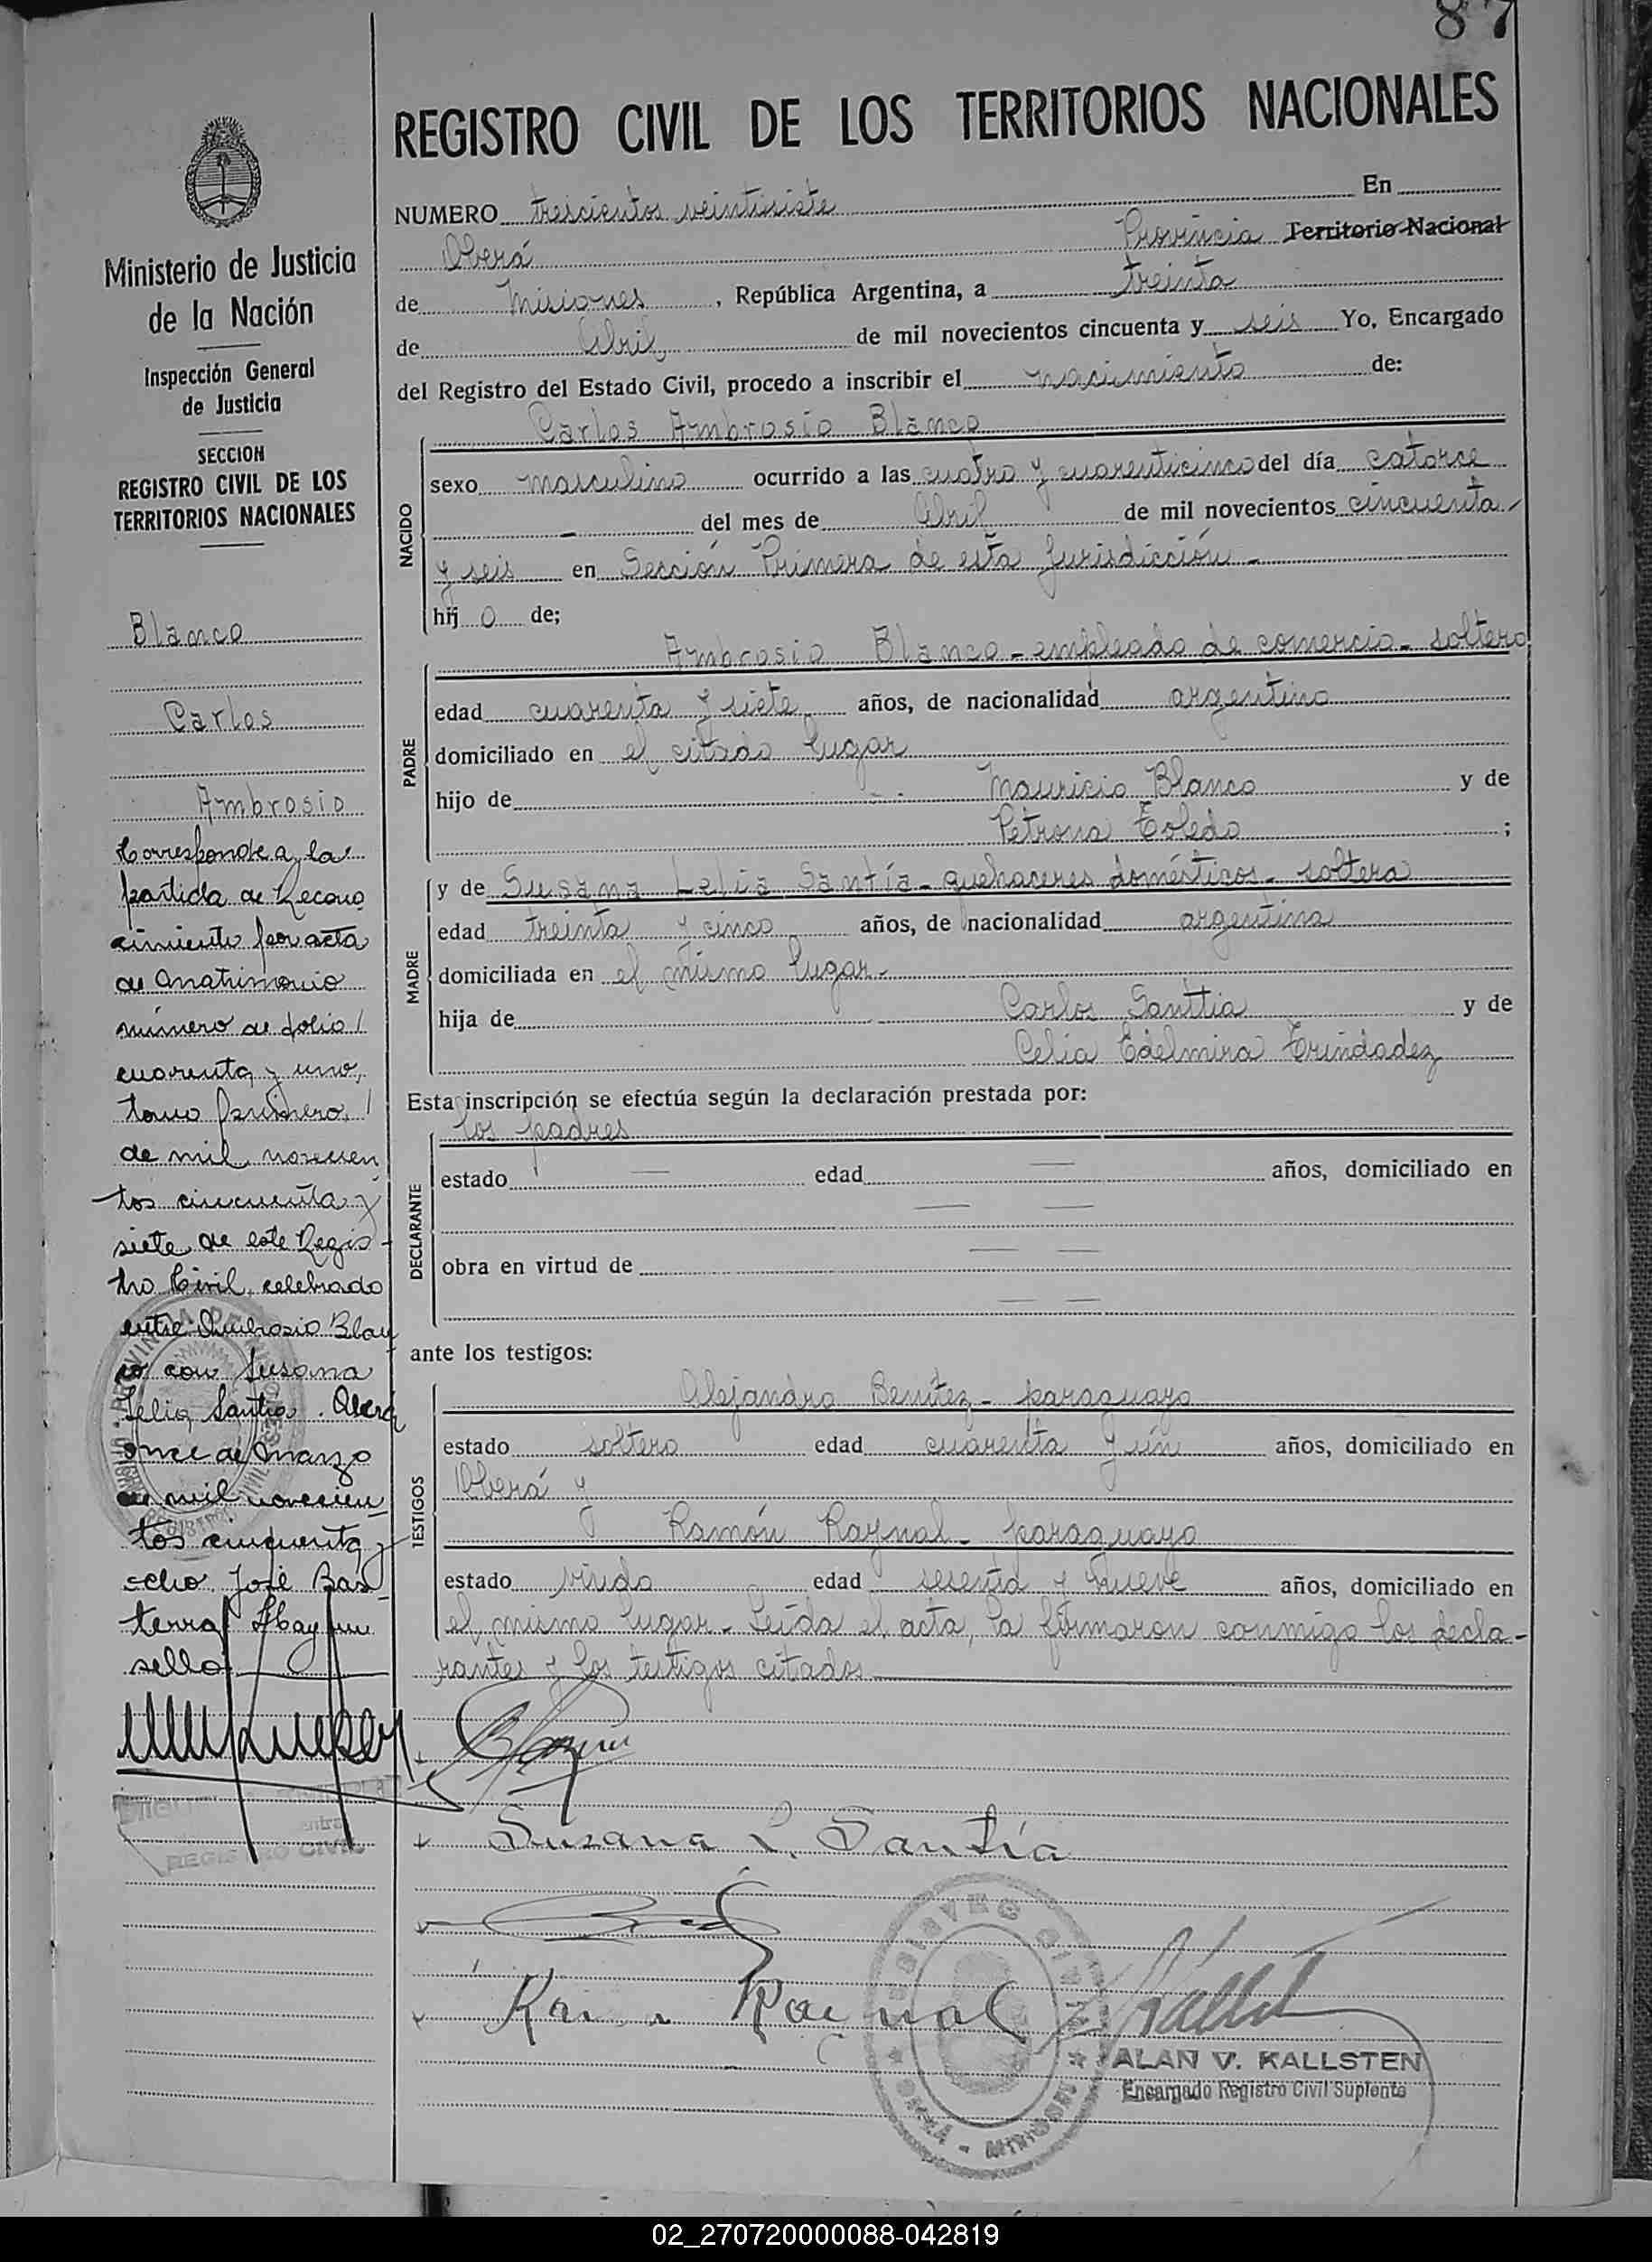 87
REGISTRO CIVIL DE LOS TERRITORIOS NACIONALES
Ministerio de Justicia
de la Nación
Inspección General
de Justicia
SECCION
REGISTRO CIVIL DE LOS
TERRITORIOS NACIONALES
Blanco
Carlos
Ambrosio
Corresponde a la
partida de Recono
cimiento por acta
de Matrimonio
número de folio
cuarenta y uno,
tomo primero,
de mil novecien
tos cincuenta y
siete de este Regis
tro Civil, celebrado
entre Ambrosio Blan
co con Susana
Lelia Santia. Oberá
once de Marzo
de mil novecien
tos cincuenta y
ocho. José Bas
terra. Hay un
sello.
REGISTRO CIVIL
NUMERO trescientos veintisiete En
Oberá Provincia Territorio Nacional
de Misiones, República Argentina, a treinta
de Abril de mil novecientos cincuenta y seis Yo, Encargado
del Registro del Estado Civil, procedo a inscribir el nacimiento de:
NACIDO
Carlos Ambrosio Blanco
sexo masculino ocurrido a las cuatro y cuarenticinco del día catorce
— del mes de Abril de mil novecientos cincuenta
y seis en Sección Primera de esta Jurisdicción -
hij o de;
PADRE
Ambrosio Blanco - empleado de comercio - soltero
edad cuarenta y siete años, de nacionalidad argentino
domiciliado en el citado lugar
hijo de Mauricio Blanco y de
Petrona Toledo ;
MADRE
y de Susana Lelia Santía - quehaceres domésticos - soltera
edad treinta y cinco años, de nacionalidad argentina
domiciliada en el mismo lugar -
hija de Carlos Santtia y de
Celia Edelmira Trindadez
Esta inscripción se efectúa según la declaración prestada por:
DECLARANTE
los padres
estado — edad — años, domiciliado en
— —
obra en virtud de — —
— —
ante los testigos:
TESTIGOS
Alejandro Benítez - paraguayo
estado soltero edad cuarenta y un años, domiciliado en
Oberá y
Ramón Raynal - paraguayo
estado viudo edad sesenta y nueve años, domiciliado en
el mismo lugar - Leída el acta, la firmaron conmigo los decla-
rantes y los testigos citados
Susana L. Santía
Raynal
ALAN V. KALLSTEN
Encargado Registro Civil Suplente
02_270720000088-042819